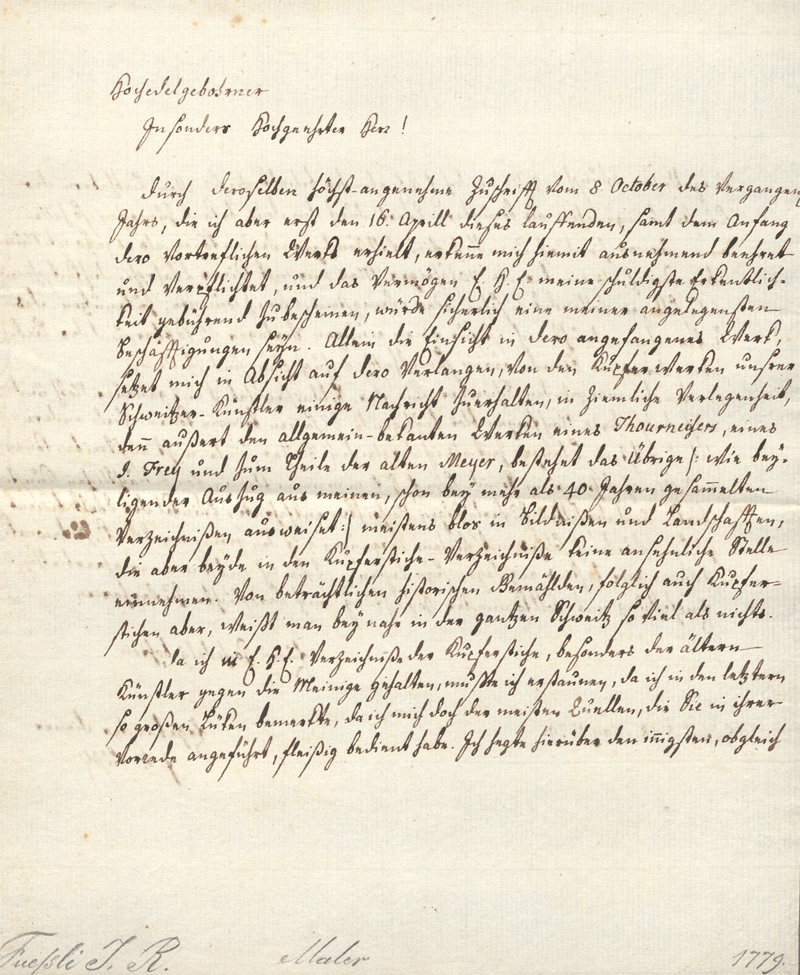 Hochedelgebohrner
Insonders Hochgeehrter Herr!
Durch deroselben höchst-angenehme Zuschrifft vom 8 October des vergangen
Jahrs, die ich aber erst den 16. Aprill dieses lauffenden, samt dem Anfang
dero vortreflichen Werks erhielt, erkenne mich hiemit ausnehmend beehret
und verpflichtet, und das Vermögen E. H. E. meine schuldigste Erkentlich-
keit gebührend zubescheinen, würde sicherlich eine meiner angelegensten
Beschäfftigungen seyn. Allein die Einsicht in dero angefangenes Werk,
setzet mich in Absicht auf dero Verlangen, von den Kupferwerken unsrer
Schweitzer-Künstler einige Nachricht zuerhalten, in ziemliche Verlegenheit,
denn außert den allgemein-bekanten Werken eines Thourneisers, eines
J. Frey und zum Theile der alten Meyer, bestehet das Übrige /: wie bey-
ligender Auszug aus meinen, schon bey mehr als 40 Jahren gesammelten
Verzeichnißen ausweiset :/ meistens blos in Bildnißen und Landschafften,
die aber beyde in den Kupferstiche-Verzeichniße keine ansehnliche Stelle
einnehmen. Von beträchtlichen historischen Gemählden, folglich auch Kupfer-
stichen aber, weißt man bey nahe in der gantzen Schweitz so viel als nichts.
Da ich E. H. E. Verzeichniße der Kupferstiche, besonders der ältern
Künstler gegen die Meinige gehalten, mußte ich erstaunen, da ich in den letztern
so großen Lüken bemerkte, da ich mich doch der meisten Quellen, die Sie in ihrer
Vorrede angeführt, fleißig bedient habe. Ich hegte hierüber den innigsten, obgleich
Fuessli J. R. Maler 1779.